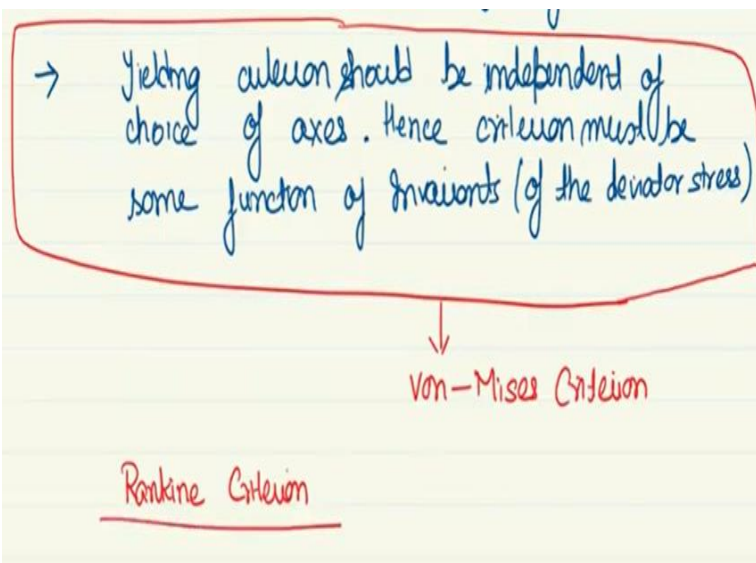 → Yielding criterion should be independent of
choice of axes. Hence criterion must be
some function of Invariants (of the deviator stress)
Von-Mises Criterion
Rankine Criterion